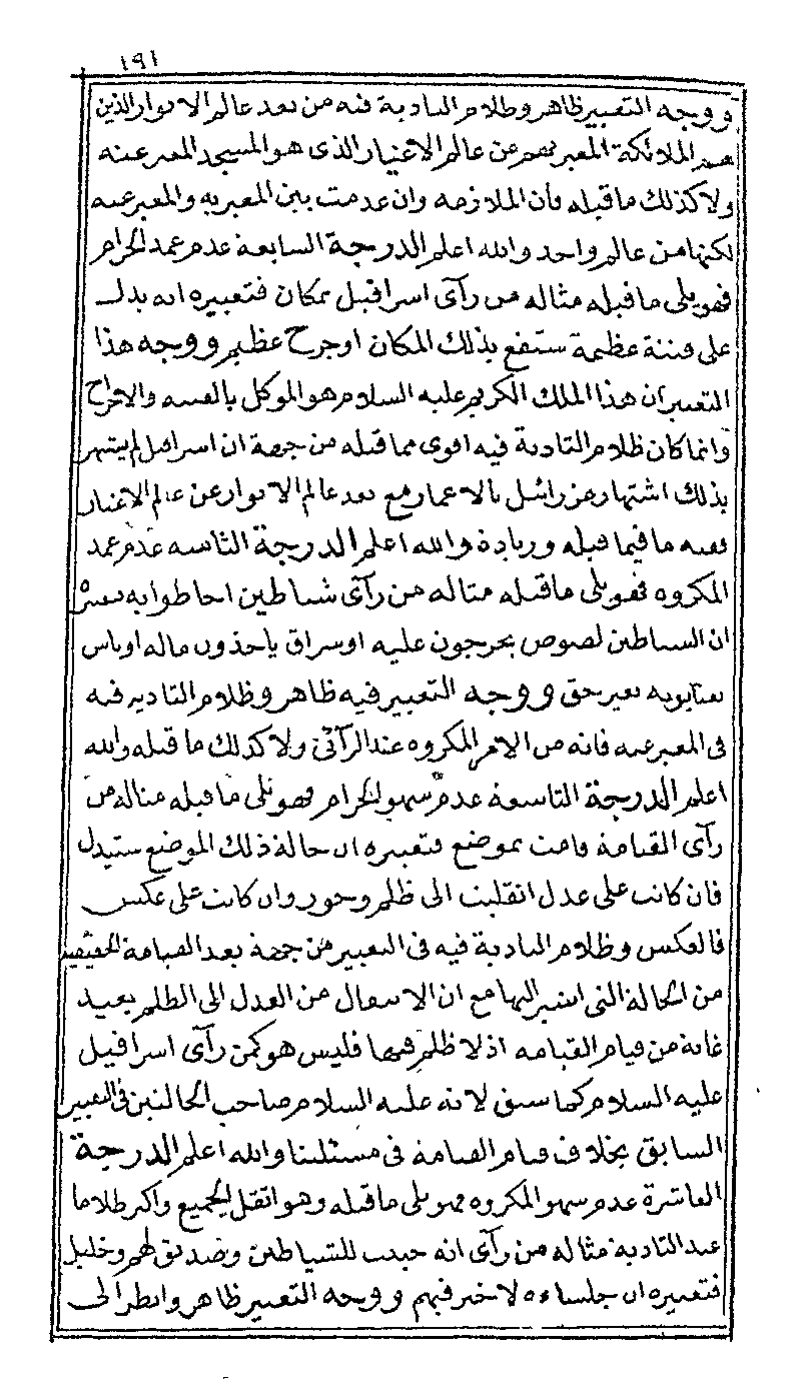 ١٩١
ووجه التعبير ظاهر وظلام التادية فيه من بعد عالم الانوار الذين
هم الملائكة المعبر بهم عن عالم الاغيار الذى هو المسجد المعبر عنه
ولا كذلك ما قبله فان الملازمة وان عدمت بين المعبر به والمعبر عنه
لكنها من عالم واحد والله اعلم الدرجة السابعة عدم عمد الحرام
فهو يلى ما قبله مثاله من رآى اسرافيل بمكان فتعبيره انه يدل
على فتنة عظيمة ستقع بذلك المكان او جرح عظيم ووجه هذا
التعبير ان هذا الملك الكريم عليه السلام هو الموكل بالفتنه والاجراح
وانما كان ظلام التادية فيه اقوى مما قبله من جهة ان اسرافيل لم يشتهر
بذلك اشتهار عزرائيل بالاعمار مع بعد عالم الانوار عن عالم الاغيار
ففيه ما فيما قبله وزيادة والله اعلم الدرجة الثامنه عدم عمد
المكروه فهو يلى ما قبله مثاله من رآى شياطين احاطوا به
ان الشياطين لصوص يخرجون عليه او سراق ياخذون ماله او ناس
يغتابونه بغير حق ووجه التعبير فيه ظاهر وظلام التاديه فيه
فى المعبر عنه فانه من الامر المكروه عند الرآئى ولا كذلك ما قبله والله
اعلم الدرجة التاسعة عدم سهو الحرام فهو يلى ما قبله مثاله من
رآى القيامة قامت بموضع فتعبيره ان حالة ذلك الموضع ستبدل
فان كانت على عدل انقلبت الى ظلم وجور وان كانت على عكس
فالعكس وظلام التادية فيه فى التعبير من جهة بعد القيامة الحقيقية
من الحالة التى اشير اليها مع ان الانتقال من العدل الى الظلم بعيد
غاية من قيام القيامه اذ لا ظلم فيها فليس هو كمن رآى اسرافيل
عليه السلام كما سبق لانه عليه السلام صاحب الحالتين فى التعبير
السابق بخلاف قيام القيامة فى مسئلتنا والله اعلم الدرجة
العاشرة عدم سهو المكروه فهو يلى ما قبله وهو اثقل الجميع واكثر ظلاما
عند التادية مثاله من رآى انه حبيب للشياطين وصديق لهم وخليل
فتعبيره ان جلساءه لا خير فيهم ووجه التعبير ظاهر وانظر الى